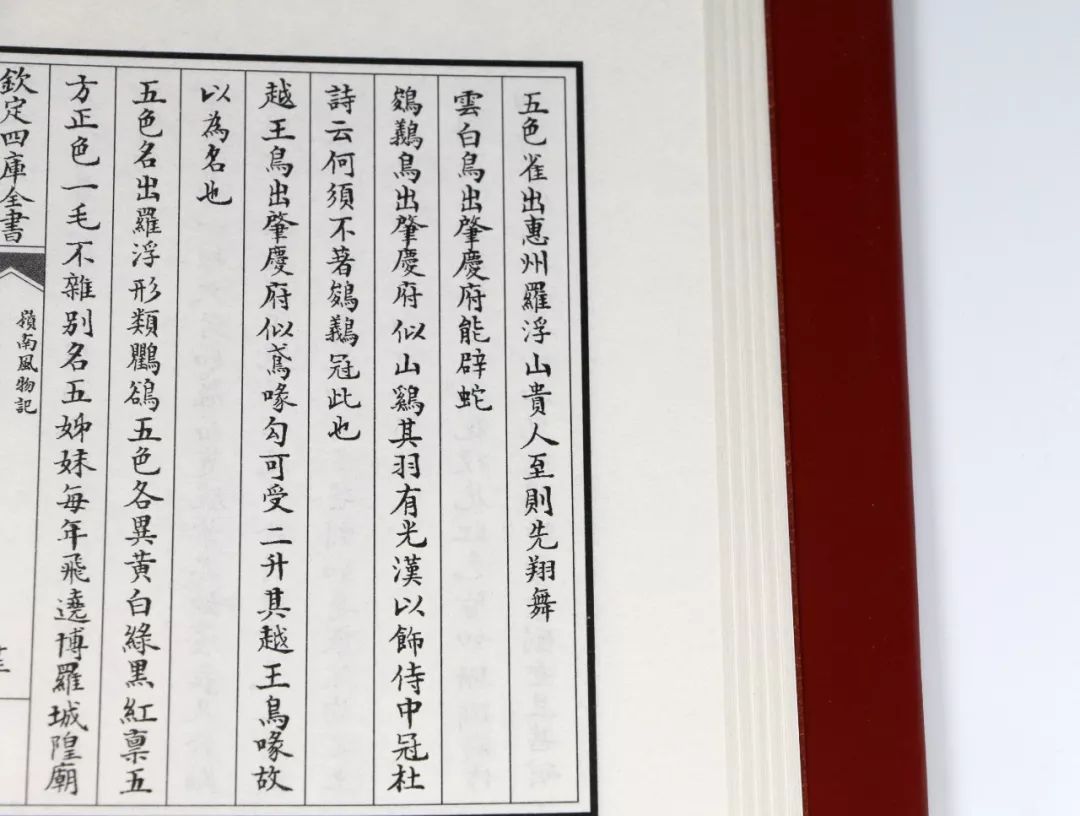 五色雀出惠州羅浮山貴人至則先翔舞
雲白鳥出肇慶府能辟蛇
鵕鸃鳥出肇慶府似山鷄其羽有光漢以飾侍中冠杜
詩云何須不著鵕鸃冠此也
越王鳥出肇慶府似鳶喙勾可受二升其越王鳥喙故
以為名也
五色名出羅浮形類鸜鵒五色各異黃白綠黑紅稟五
方正色一毛不雜别名五姊妹每年飛遶博羅城隍廟
欽定四庫全書
嶺南風物記